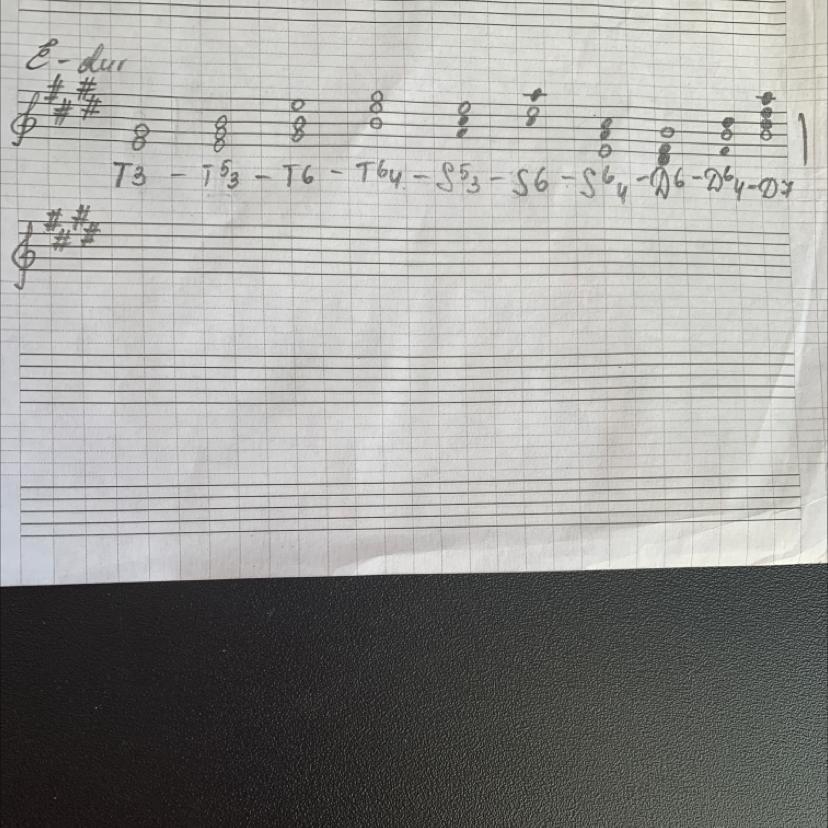 E-dur
T3 - T53 - T6 - T64 - S53 - S6 - S64 - D6 - D64 - D7